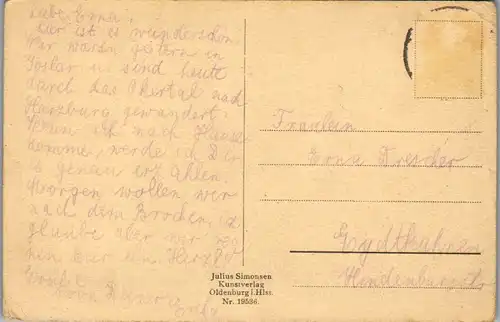 Liebe Erna!
Hier ist es wunderschön.
Wir waren gestern in
Goslar u. sind heute
durch das Okertal nach
Harzburg gewandert.
Wenn ich nach Hause
komme, werde ich Dir
es genau erzählen.
Morgen wollen wir
nach dem Brocken, ich
glaube aber wir
nur bis Harzbg
Fräulein
Erna Drescher
Eydtkuhnen
Hindenburgstr
Julius Simonsen
Kunstverlag
Oldenburg i. Hlst.
Nr. 19536.